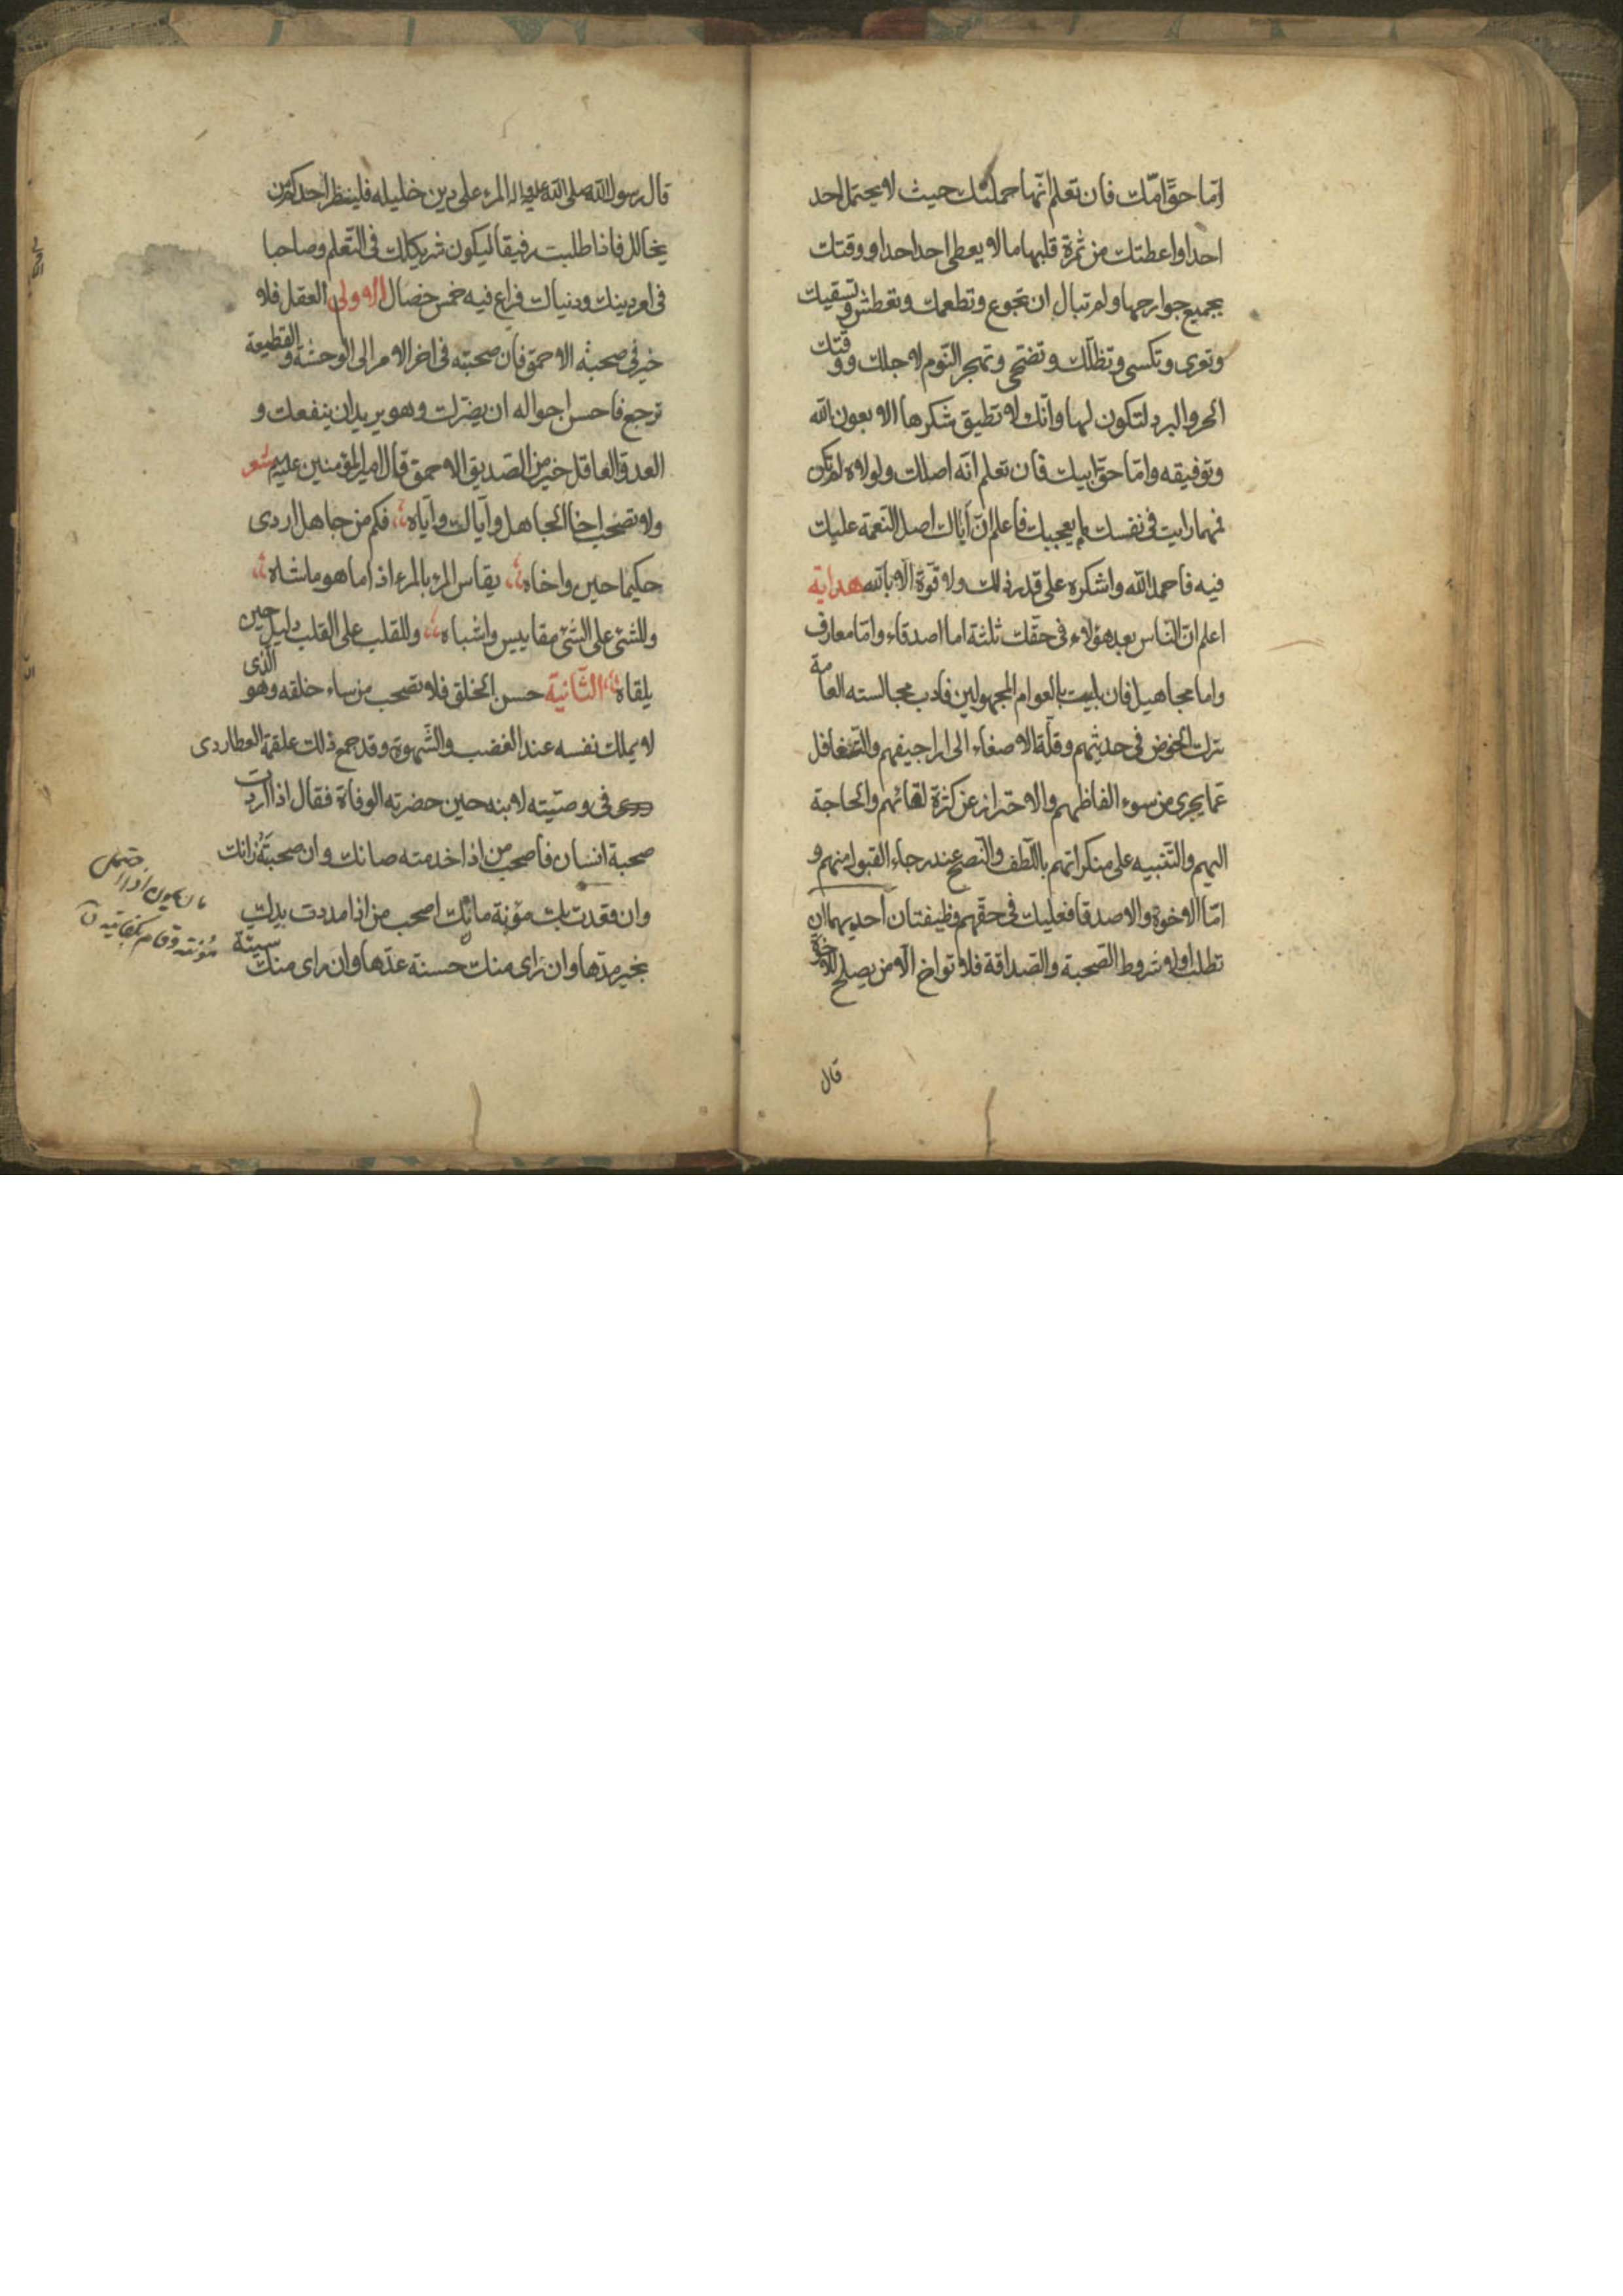 امّا حقّ امّك فان تعلم انّها حملتك حيث لا يحتمل احد
احدا واعطتك من ثمرة قلبها ما لا يعطى احد احدا ووقتك
بجميع جوارحها ولم تبال ان تجوع وتطعمك وتعطش وتسقيك
وتعرى وتكسى وتظلّك وتضحى وتهجر النّوم لاجلك ووقتك
الحر والبرد لتكون لها وانّك لا تطيق شكرها الا بعون الله
وتوفيقه وامّا حق ابيك فان تعلم انّه اصلك ولولاه لم تكن
فمهما رايت فى نفسك ما يعجبك فاعلم انّ اباك اصل النّعمة عليك
فيه فاحمد الله واشكره على قدر ذلك ولا قوّة الّا بالله هداية
اعلم انّ النّاس بعد هؤلاء فى حقّك ثلثة اما اصدقاء وامّا معارف
واما مجاهيل فان بليت بالعوام المجهولين فادب مجالسته العامة
ترك الخوض فى حديثهم وقلّة الاصغاء الى اراجيفهم والتّغافل
عمّا يجرى من سوء الفاظهم والاحتراز عن كثرة لقائهم والحاجة
اليهم والتّنبيه على منكراتهم باللّطف والنّصح عند رجاء القبول منهم و
امّا الاخوة والاصدقا فعليك فى حقّهم وظيفتان احديهما ان
تطلب اولا شروط الصّحبة والصّداقة فلا تواخ الّا من يصلح للاخوّة
قال
قال رسول الله صلى الله عليه واله المرء على دين خليله فلينظر احدكم من
يخالل فاذا طلبت رفيقا ليكون شريكك فى التّعلم وصاحبا
فى امر دينك ودنياك فراع فيه خمس خصال الاولى العقل فلا
خير فى صحبة الاحمق فان صحبته فى اخر الامر الى الوحشة والقطيعة
ترجع فاحسن احواله ان يضرّك وهو يريد ان ينفعك و
العدو العاقل خير من الصّديق الاحمق قال امير المؤمنين عليه شعر
ولا تصحب اخا الجاهل واياك واياه فكم من جاهل اردى
حكيما حين واخاه يقاس المرء بالمرء اذا ما هو ماشاه
وللشئ على الشئ مقاييس واشباه وللقلب على القلب دليل حين
يلقاه الثّانية حسن الخلق فلا تصحب من ساء خلقه وهو الّذى
لا يملك نفسه عند الغضب والشّهوة وقد جمع ذلك علقمة العطاردى
فى وصيّته لابنه حين حضرته الوفاة فقال اذا اردت
صحبة انسان فاصحب من اذا خدمته صانك وان صحبته زانك
وان قعدت بك مؤنة مانك اصحب من اذا مددت يدك
بخير مدّها وان راى منك حسنة عدّها وان راى منك سيئة
مؤنته وقام بكفايته